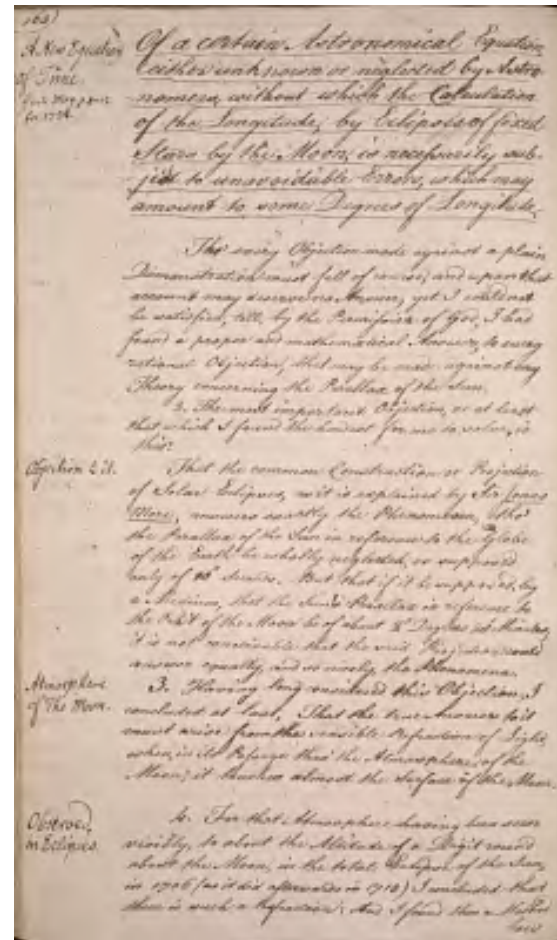 164)
A New Equation
of Time.
for 1726.
Of a certain Astronomical Equation
(either unknown or neglected by Astro-
nomers) without which the Calculation
of the Longitude, by Eclipses of fixed
Stars by the Moon, is necessarily sub-
ject to unavoidable Errors, which may
amount to some Degrees of Longitude.
Tho' every Objection made against a plain
Demonstration must fall of course, and upon that
account may deserve no Answer, yet I could not
be satisfied, till, by the Permission of God, I had
found a proper and mathematical Answer, to every
rational Objection, that may be made against my
Theory concerning the Parallax of the Sun.
2. The most important Objection, or at least
that which I found the hardest for me to solve, is
this:
Objection to it.
That the common Construction or Projection
of Solar Eclipses, as it is explained by Sir Jonas
More, answers exactly the Phenomena, tho'
the Parallax of the Sun in reference to the Globe
of the Earth be wholly neglected, or supposed
only of 10 Seconds. But that if it be supposed, by
a Medium, that the Sun's Parallax in reference to
the Orbit of the Moon be of about Degrees Minutes,
it is not conceivable that the said Projection could
answer equally, and so nicely, the Phenomena.
Atmosphere
of The Moon.
3. Having long considered this Objection, I
concluded at last, That the true Answer to it
must arise from the visible Refraction of Light,
when, in its Passage thro' the Atmosphere of the
Moon, it touches almost the Surface of the Moon.
Observed
in Eclipses.
4. For that Atmosphere having been seen
visibly, to about the Altitude of a Digit round
about the Moon, in the total Eclipse of the Sun,
in 1706 (as it did afterwards in 1715) I concluded that
there is such a Refraction: And I found then a Method
how